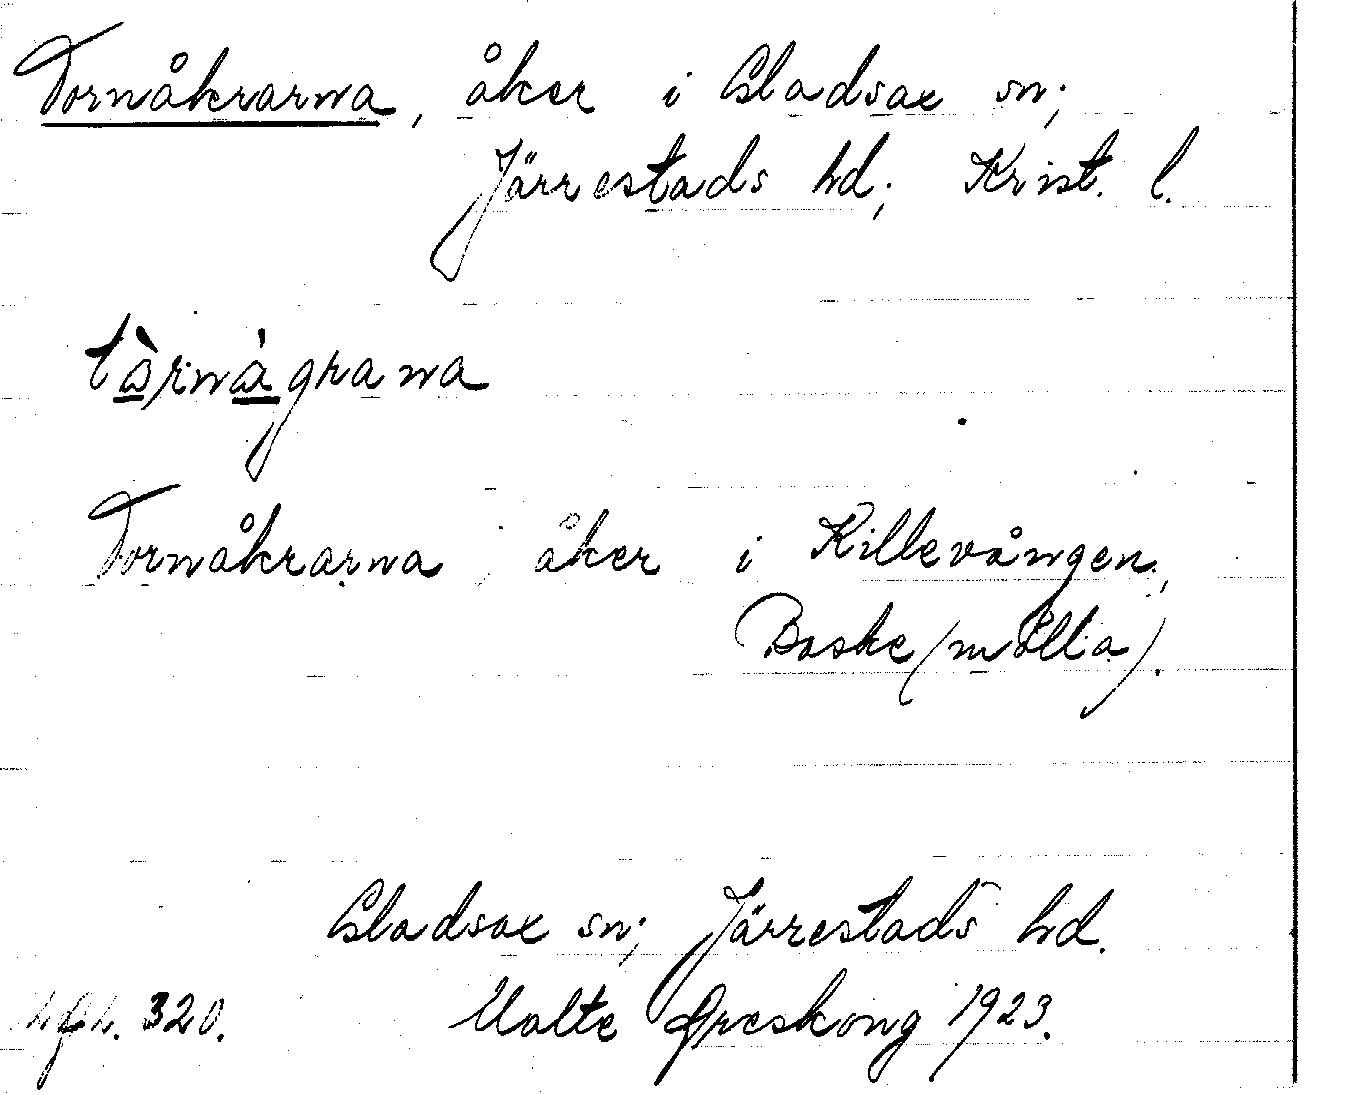 Tornåkrarna, åker i Gladsax sn;
Järrestads hd; Krist. l.
tàrnàgrana
Tornåkrarna åker i Killevången,
Baske(mölla).
Gladsax sn; Järrestads hd.
320. Malte Areskoug 1923.